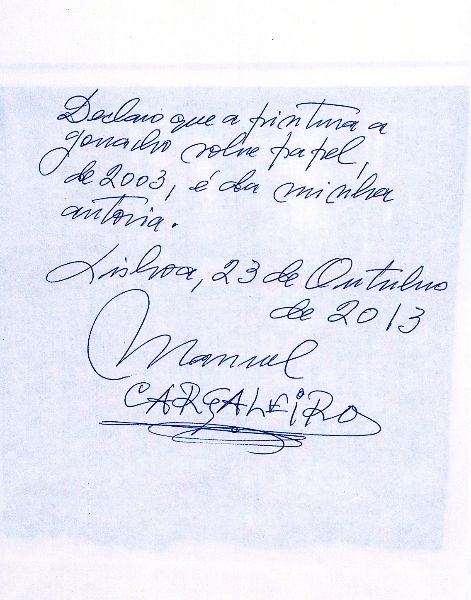 Declaro que a pintura a
gouache sobre papel,
de 2003, é da minha
autoria.
Lisboa, 23 de Outubro
de 2013
Manuel
CARGALEIRO